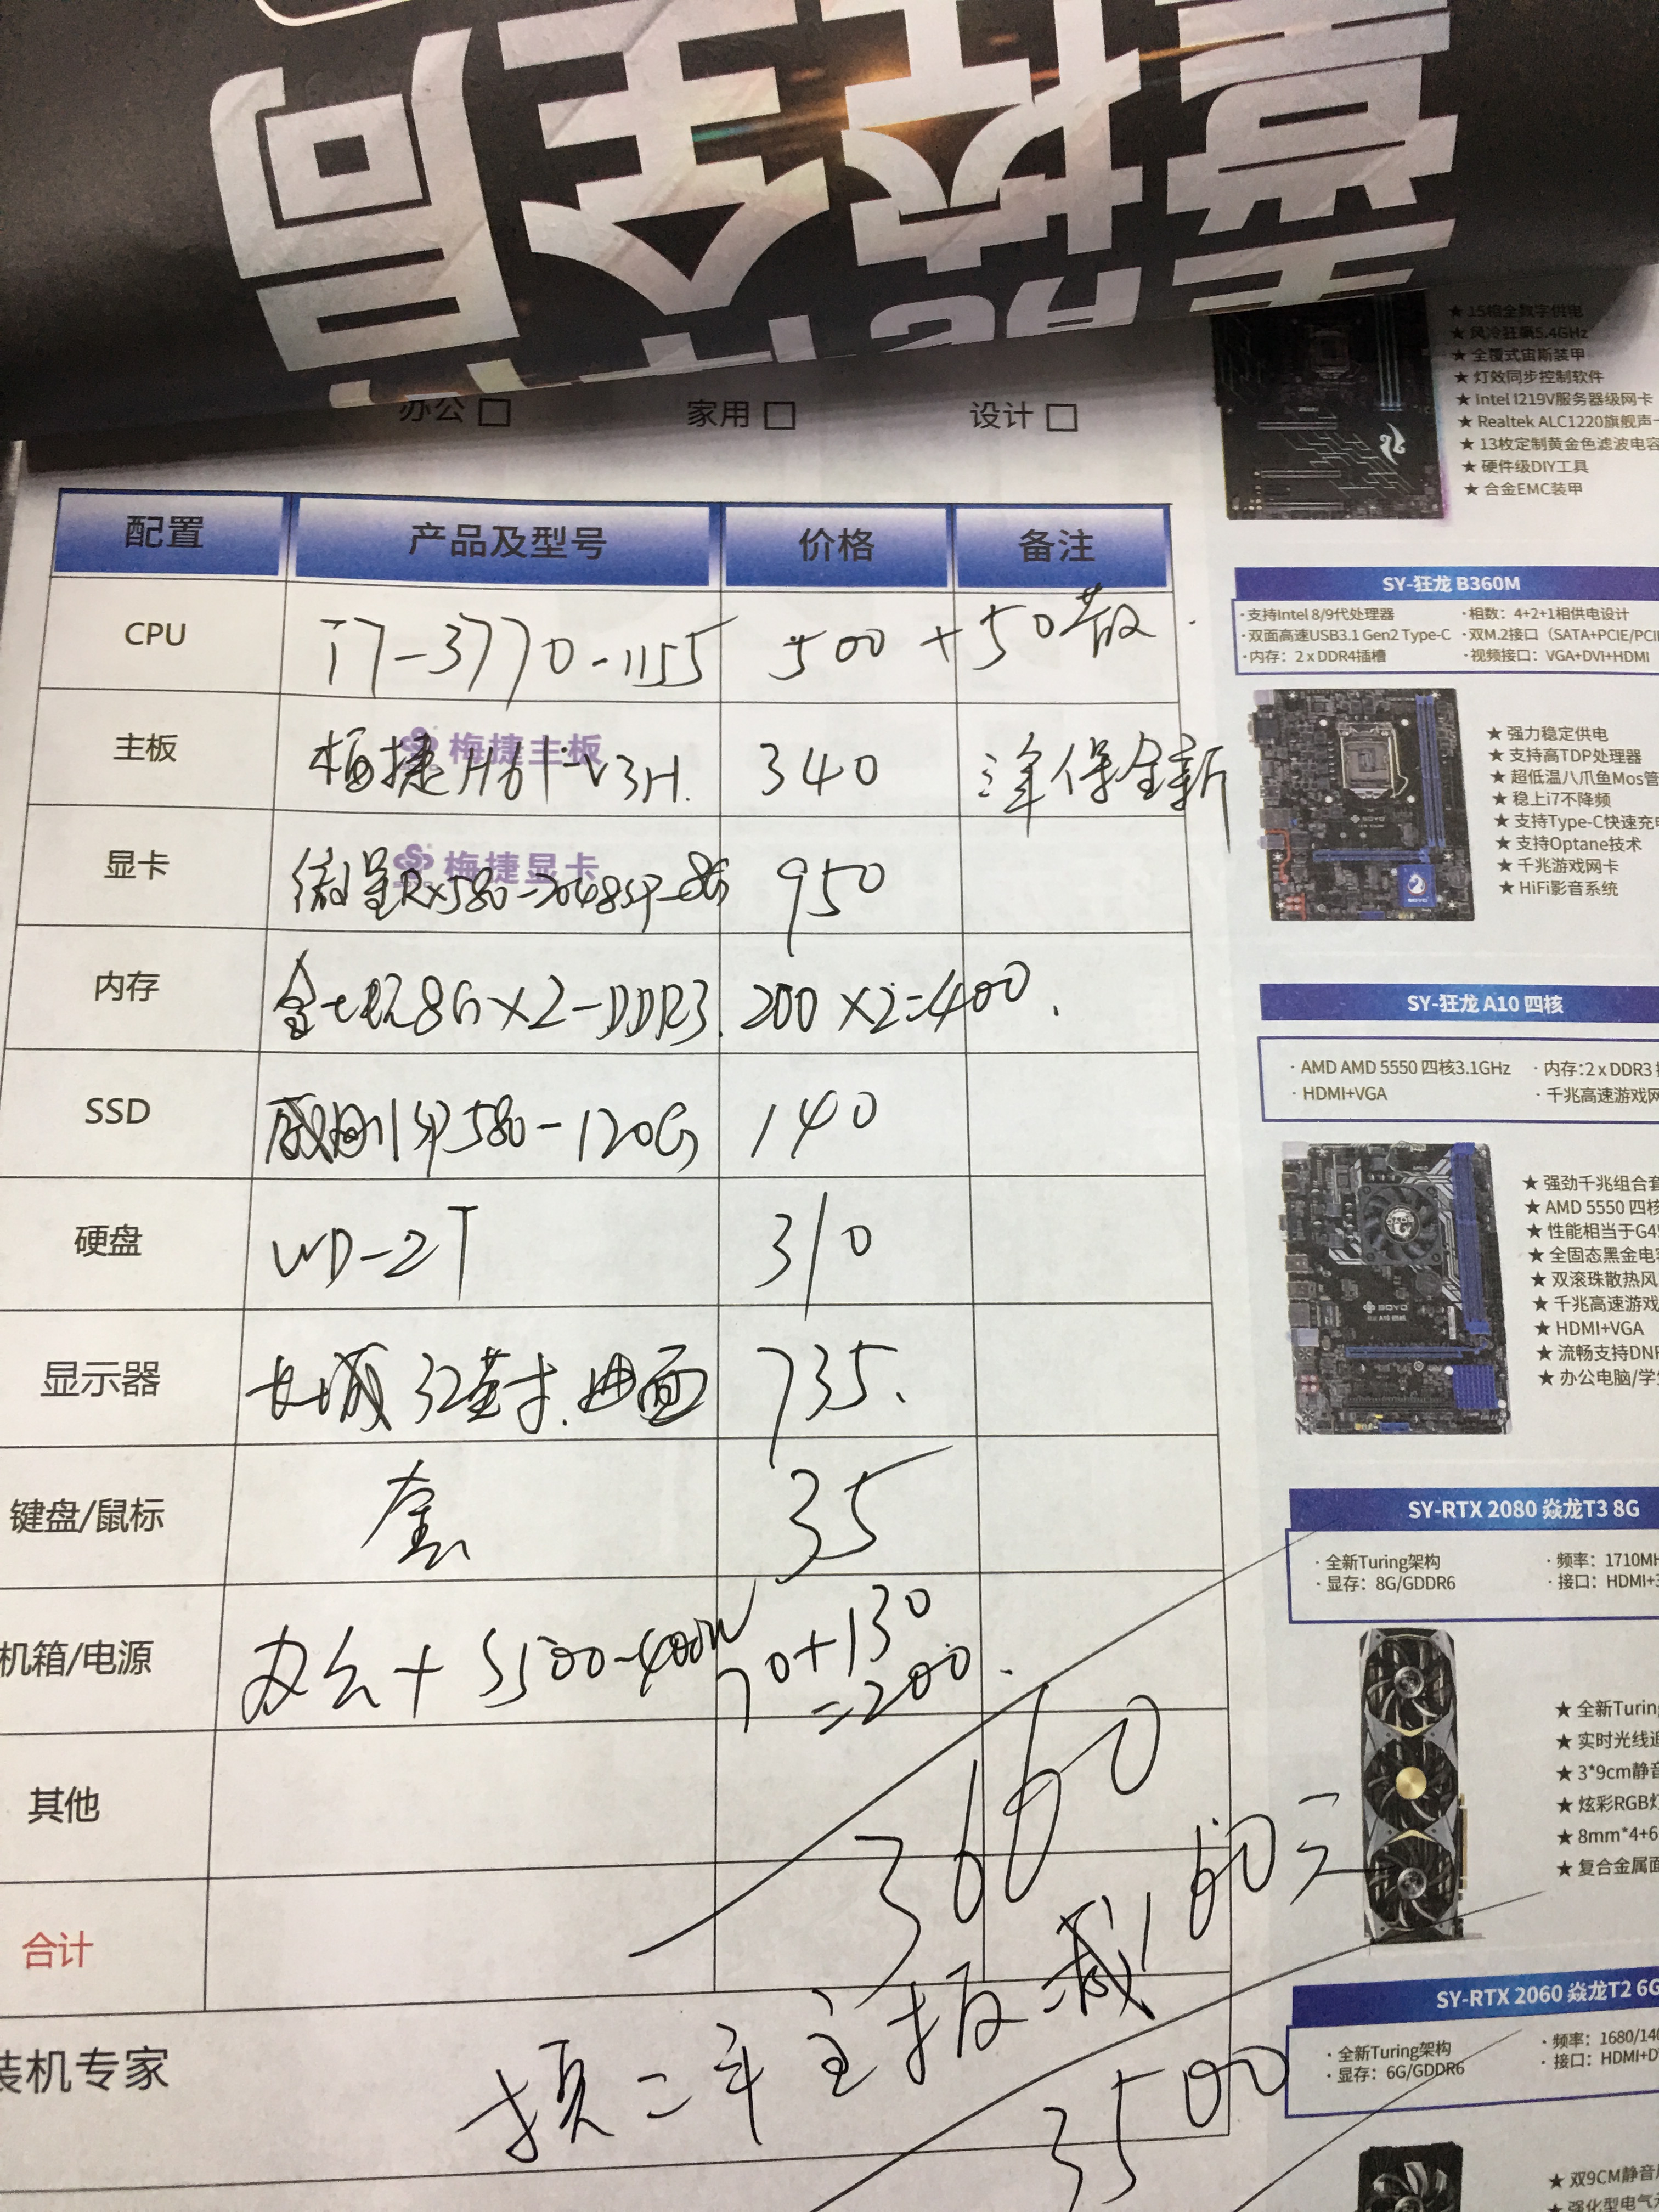 办公 □ 家用 □ 设计 □
配置 产品及型号 价格 备注
CPU i7-3770-1155 500 + 50散.
主板 梅捷H61-V3H. 340 三年保全新
梅捷主板
显卡 微星RX580-2048SP-8G 950
梅捷显卡
内存 金士顿8G×2-DDR3. 200×2=400.
SSD 威刚SP580-120G 140
硬盘 WD-2T 310
显示器 长城32英寸.曲面 735.
键盘/鼠标 套 35
机箱/电源 办公+S500-400W 70+130
=200.
其他
3660
合计
装机专家
换二手主板减160元
3500
★ 15相全数字供电
★ 风冷狂飙5.4GHz
★ 全覆式宙斯装甲
★ 灯效同步控制软件
★ Intel I219V服务器级网卡
★ Realtek ALC1220旗舰声卡
★ 13枚定制黄金色滤波电容
★ 硬件级DIY工具
★ 合金EMC装甲
SY-狂龙 B360M
·支持Intel 8/9代处理器 ·相数：4+2+1相供电设计
·双面高速USB3.1 Gen2 Type-C ·双M.2接口（SATA+PCIE/PCI
·内存：2 x DDR4插槽 ·视频接口：VGA+DVI+HDMI
★ 强力稳定供电
★ 支持高TDP处理器
★ 超低温八爪鱼Mos管
★ 稳上i7不降频
★ 支持Type-C快速充电
★ 支持Optane技术
★ 千兆游戏网卡
★ HiFi影音系统
SY-狂龙 A10 四核
· AMD AMD 5550 四核3.1GHz · 内存：2 x DDR3
· HDMI+VGA · 千兆高速游戏网
★ 强劲千兆组合套
★ AMD 5550 四核
★ 性能相当于G45
★ 全固态黑金电容
★ 双滚珠散热风
★ 千兆高速游戏
★ HDMI+VGA
★ 流畅支持DNF
★ 办公电脑/学生
SY-RTX 2080 焱龙T3 8G
· 全新Turing架构 · 频率：1710MH
· 显存：8G/GDDR6 · 接口：HDMI+3
★ 全新Turing
★ 实时光线追
★ 3*9cm静音
★ 炫彩RGB灯
★ 8mm*4+6
★ 复合金属面
SY-RTX 2060 焱龙T2 6G
· 全新Turing架构 · 频率：1680/140
· 显存：6G/GDDR6 · 接口：HDMI+D
★ 双9CM静音
★ 强化型电气